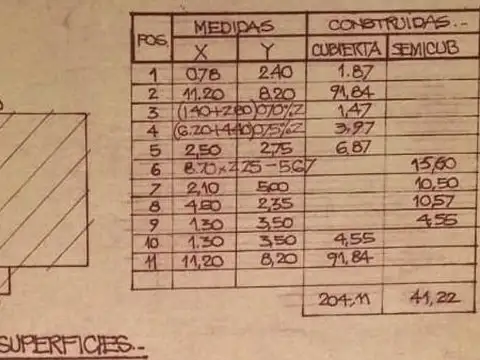 POS. MEDIDAS CONSTRUIDAS.-
X Y CUBIERTA SEMICUB
1 0.78 2.40 1.87
2 11.20 8.20 91,84
3 (1.40+2.80)0,70%2 1,47
4 (6.20+4.40)0,75%2 3,97
5 2,50 2,75 6,87
6 8.70x2.25-5.67 15,60
7 2,10 5,00 10,50
8 4.50 2,35 10,57
9 1.30 3,50 4,55
10 1.30 3,50 4,55
11 11,20 8,20 91,84
204,11 41,22
SUPERFICIES.-